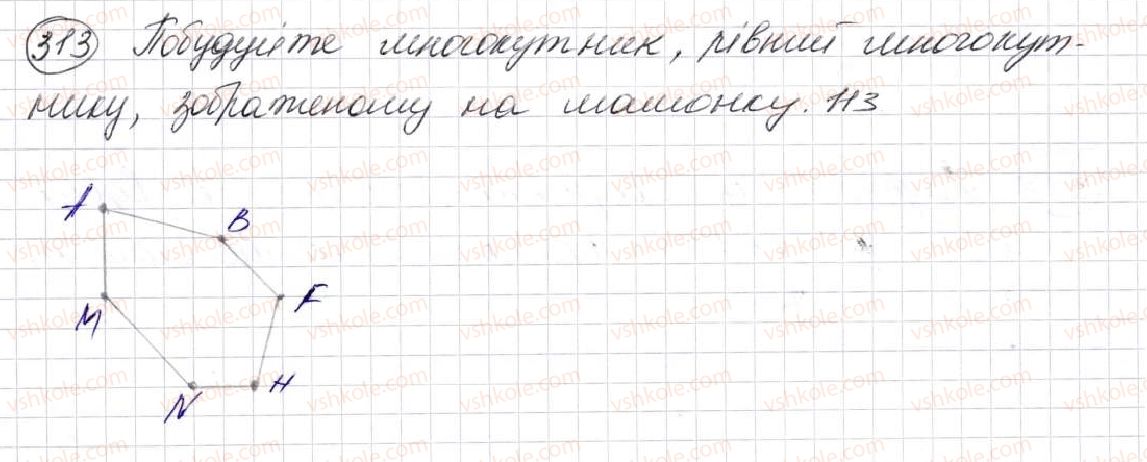 313 Побудуйте многокутник, рівний многокут-
нику, зображеному на малюнку. 113
A
B
M
F
N
H
vshkole.com